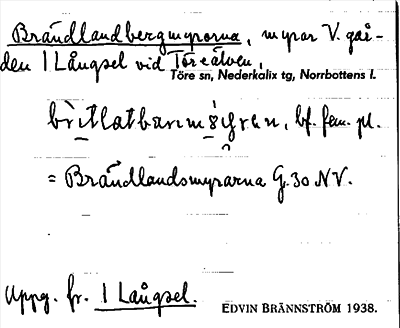 Brändlandbergmyrorna, myror V. går-
den 1 Långsel vid Töreälven,
Töre sn, Nederkalix tg, Norrbottens l.
bf. fem. pl.
= Brändlandsmyrarna G. 30 NV.
Uppg. fr. 1 Långsel.
EDVIN BRÄNNSTRÖM 1938.